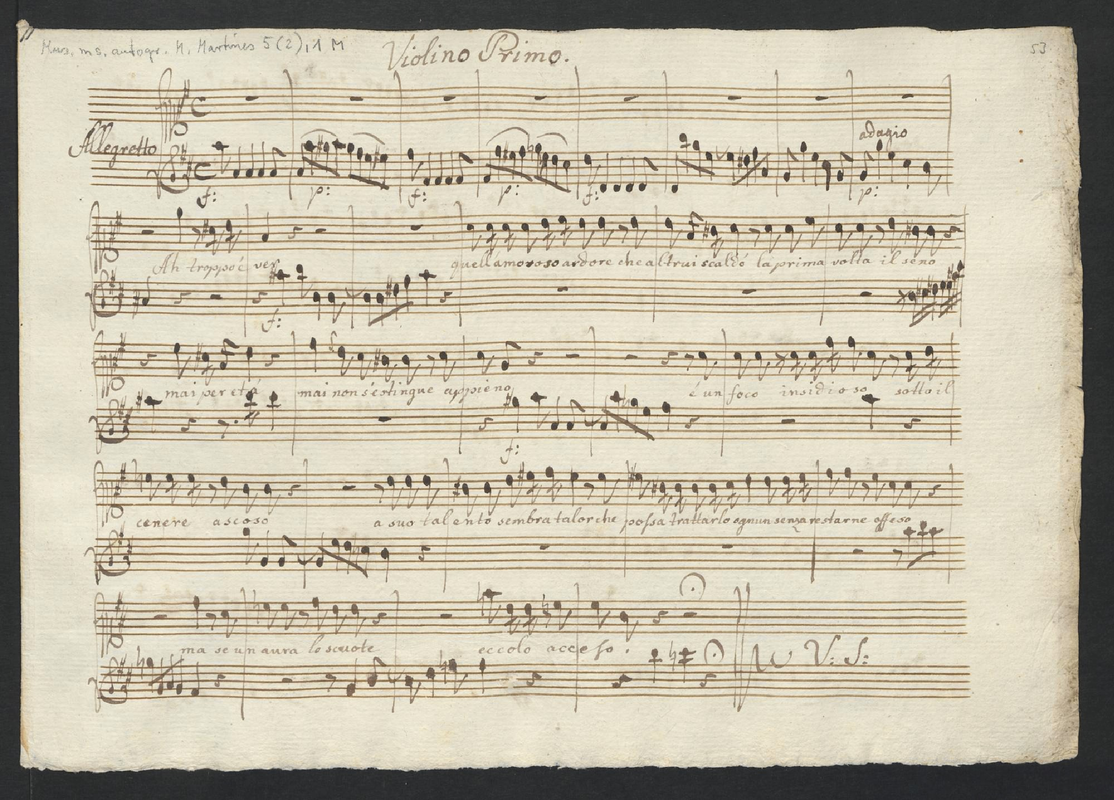 Mus. ms. autogr. M. Martines 5 (2), 1 M
Violino Primo.
53
Allegretto
adagio
f: p: f: p: f: p:
Ah troppo è ver quell'amoroso ardore che altrui scaldò la prima volta il seno
f:
mai per età mai non s'estingue appieno è un foco insidioso sotto il
f:
cenere ascoso a suo talento sembra talor che possa trattarlo ognun senza restarne offeso
ma se un aura lo scuote eccolo acceso.
V: S: